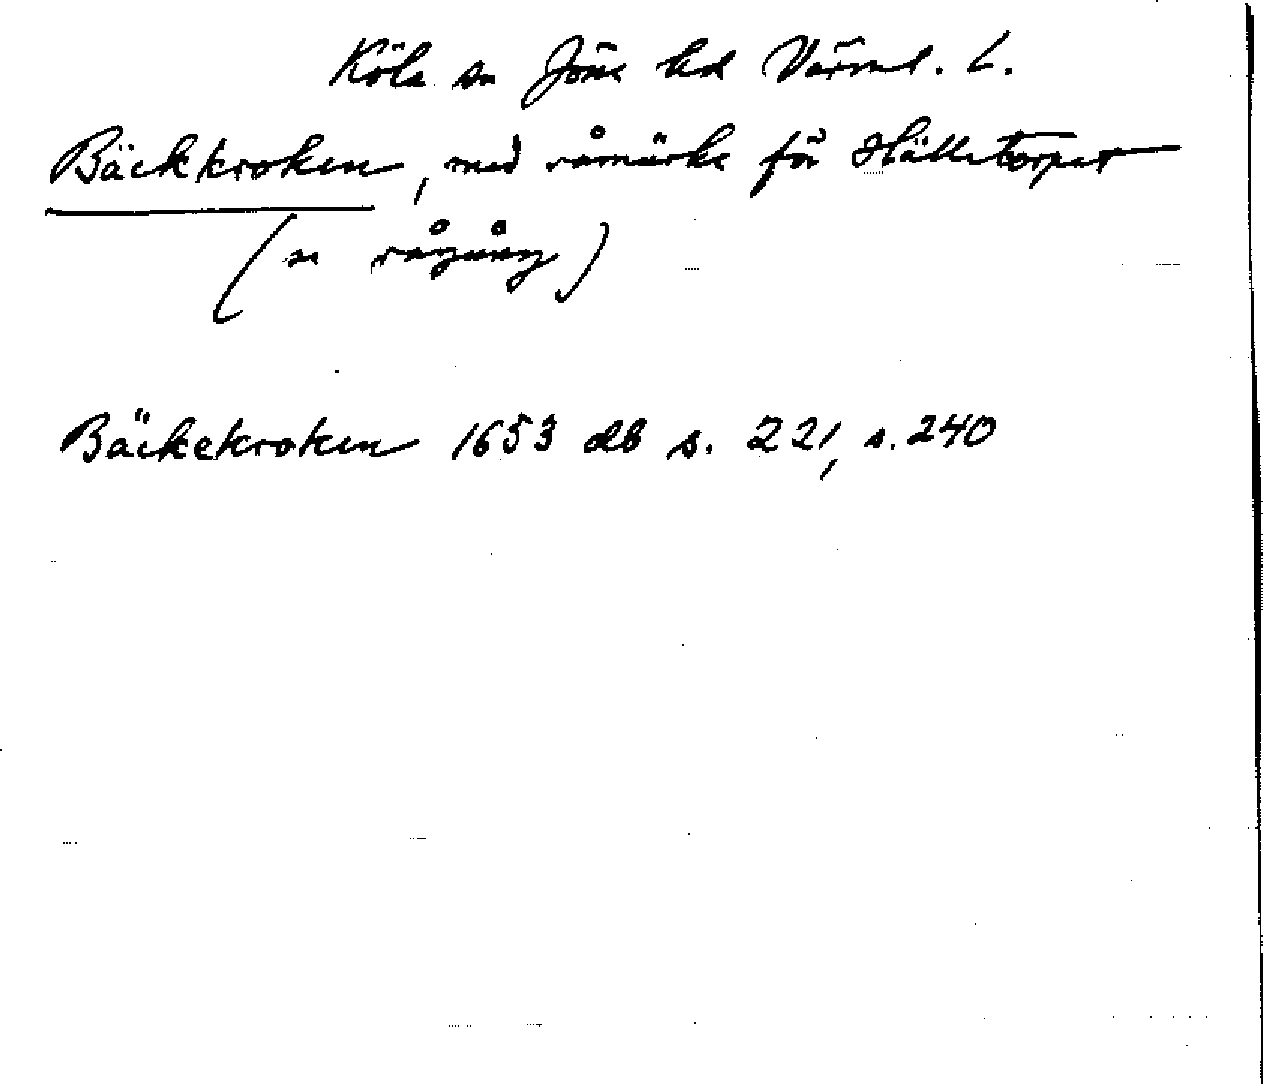 Köla sn Jösse hd Värml. L.
Bäckkroken, med råmärke för Hälletorpet
(se rågång)
Bäckekroken 1653 db s. 221, s. 240